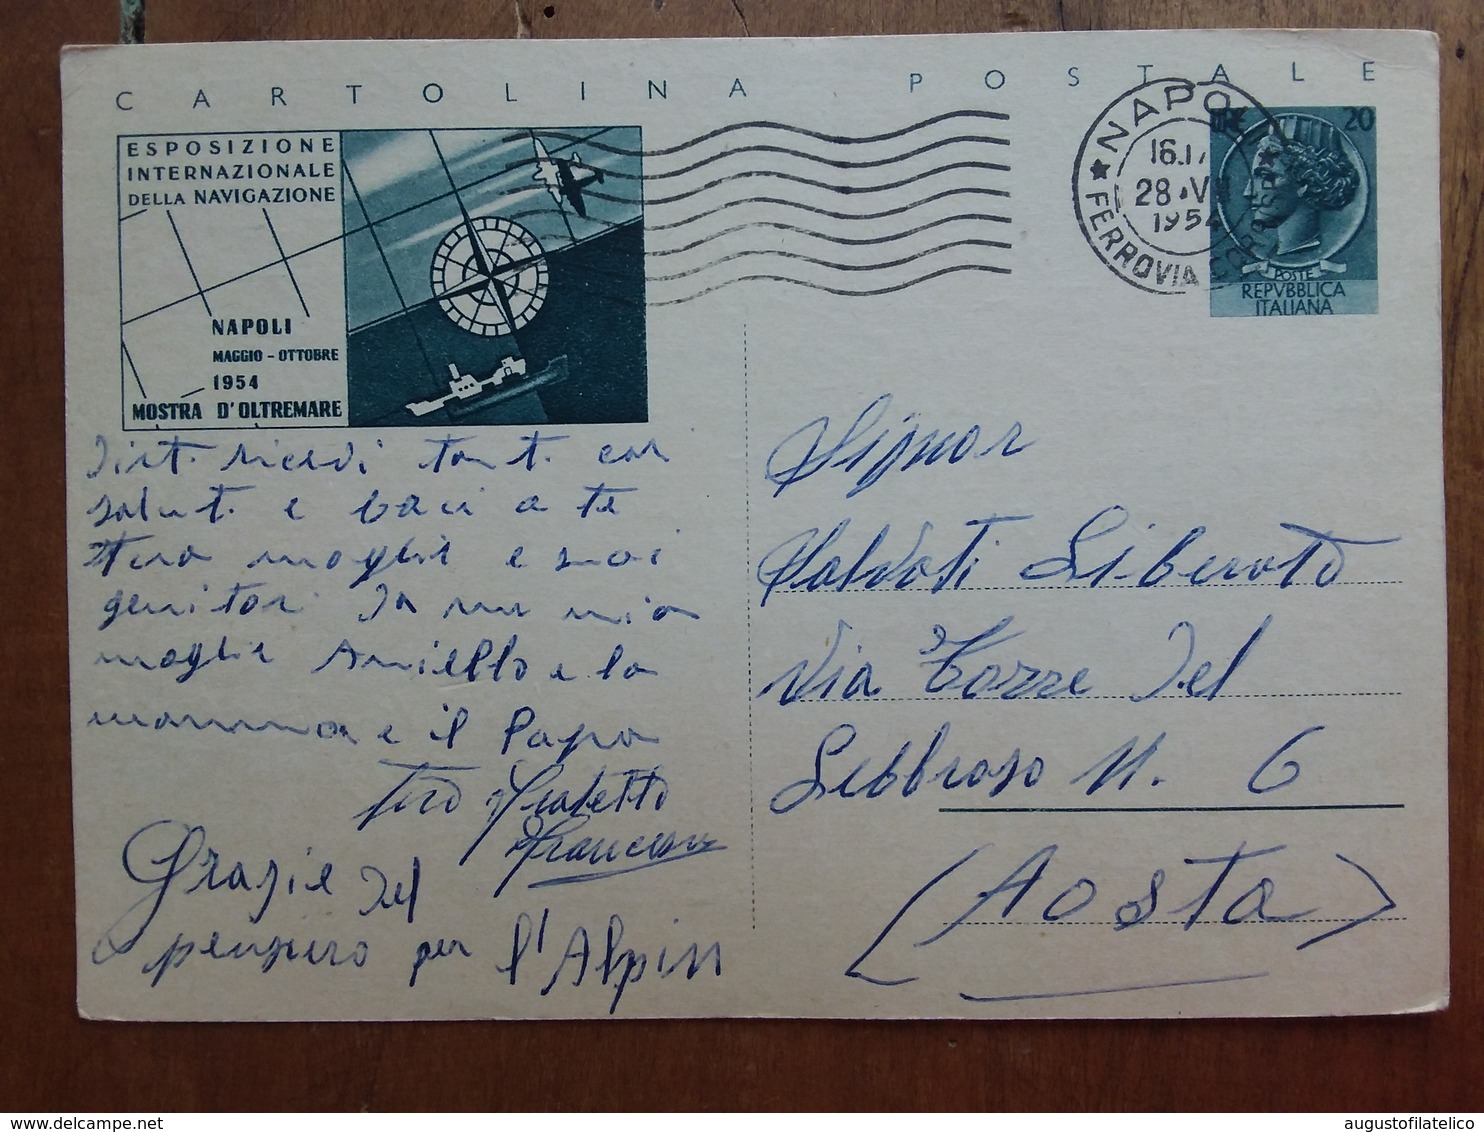 CARTOLINA POSTALE
ESPOSIZIONE
INTERNAZIONALE
DELLA NAVIGAZIONE
NAPOLI
MAGGIO - OTTOBRE
1954
MOSTRA D'OLTREMARE
NAPOLI
28
1954
FERROVIA
20
POSTE
REPVBBLICA
ITALIANA
ricevi tant. cari
salut. e baci a te
tua moglie e suoi
genitori Io mia
moglie Aniello e la
mamma e il Papa
tuo
Francesco
Grazie del
pensiero per l'Alpin
Signor
Liberato
Via Torre del
Lebbroso N. 6
(Aosta)
www.delcampe.net
augustofilatelico